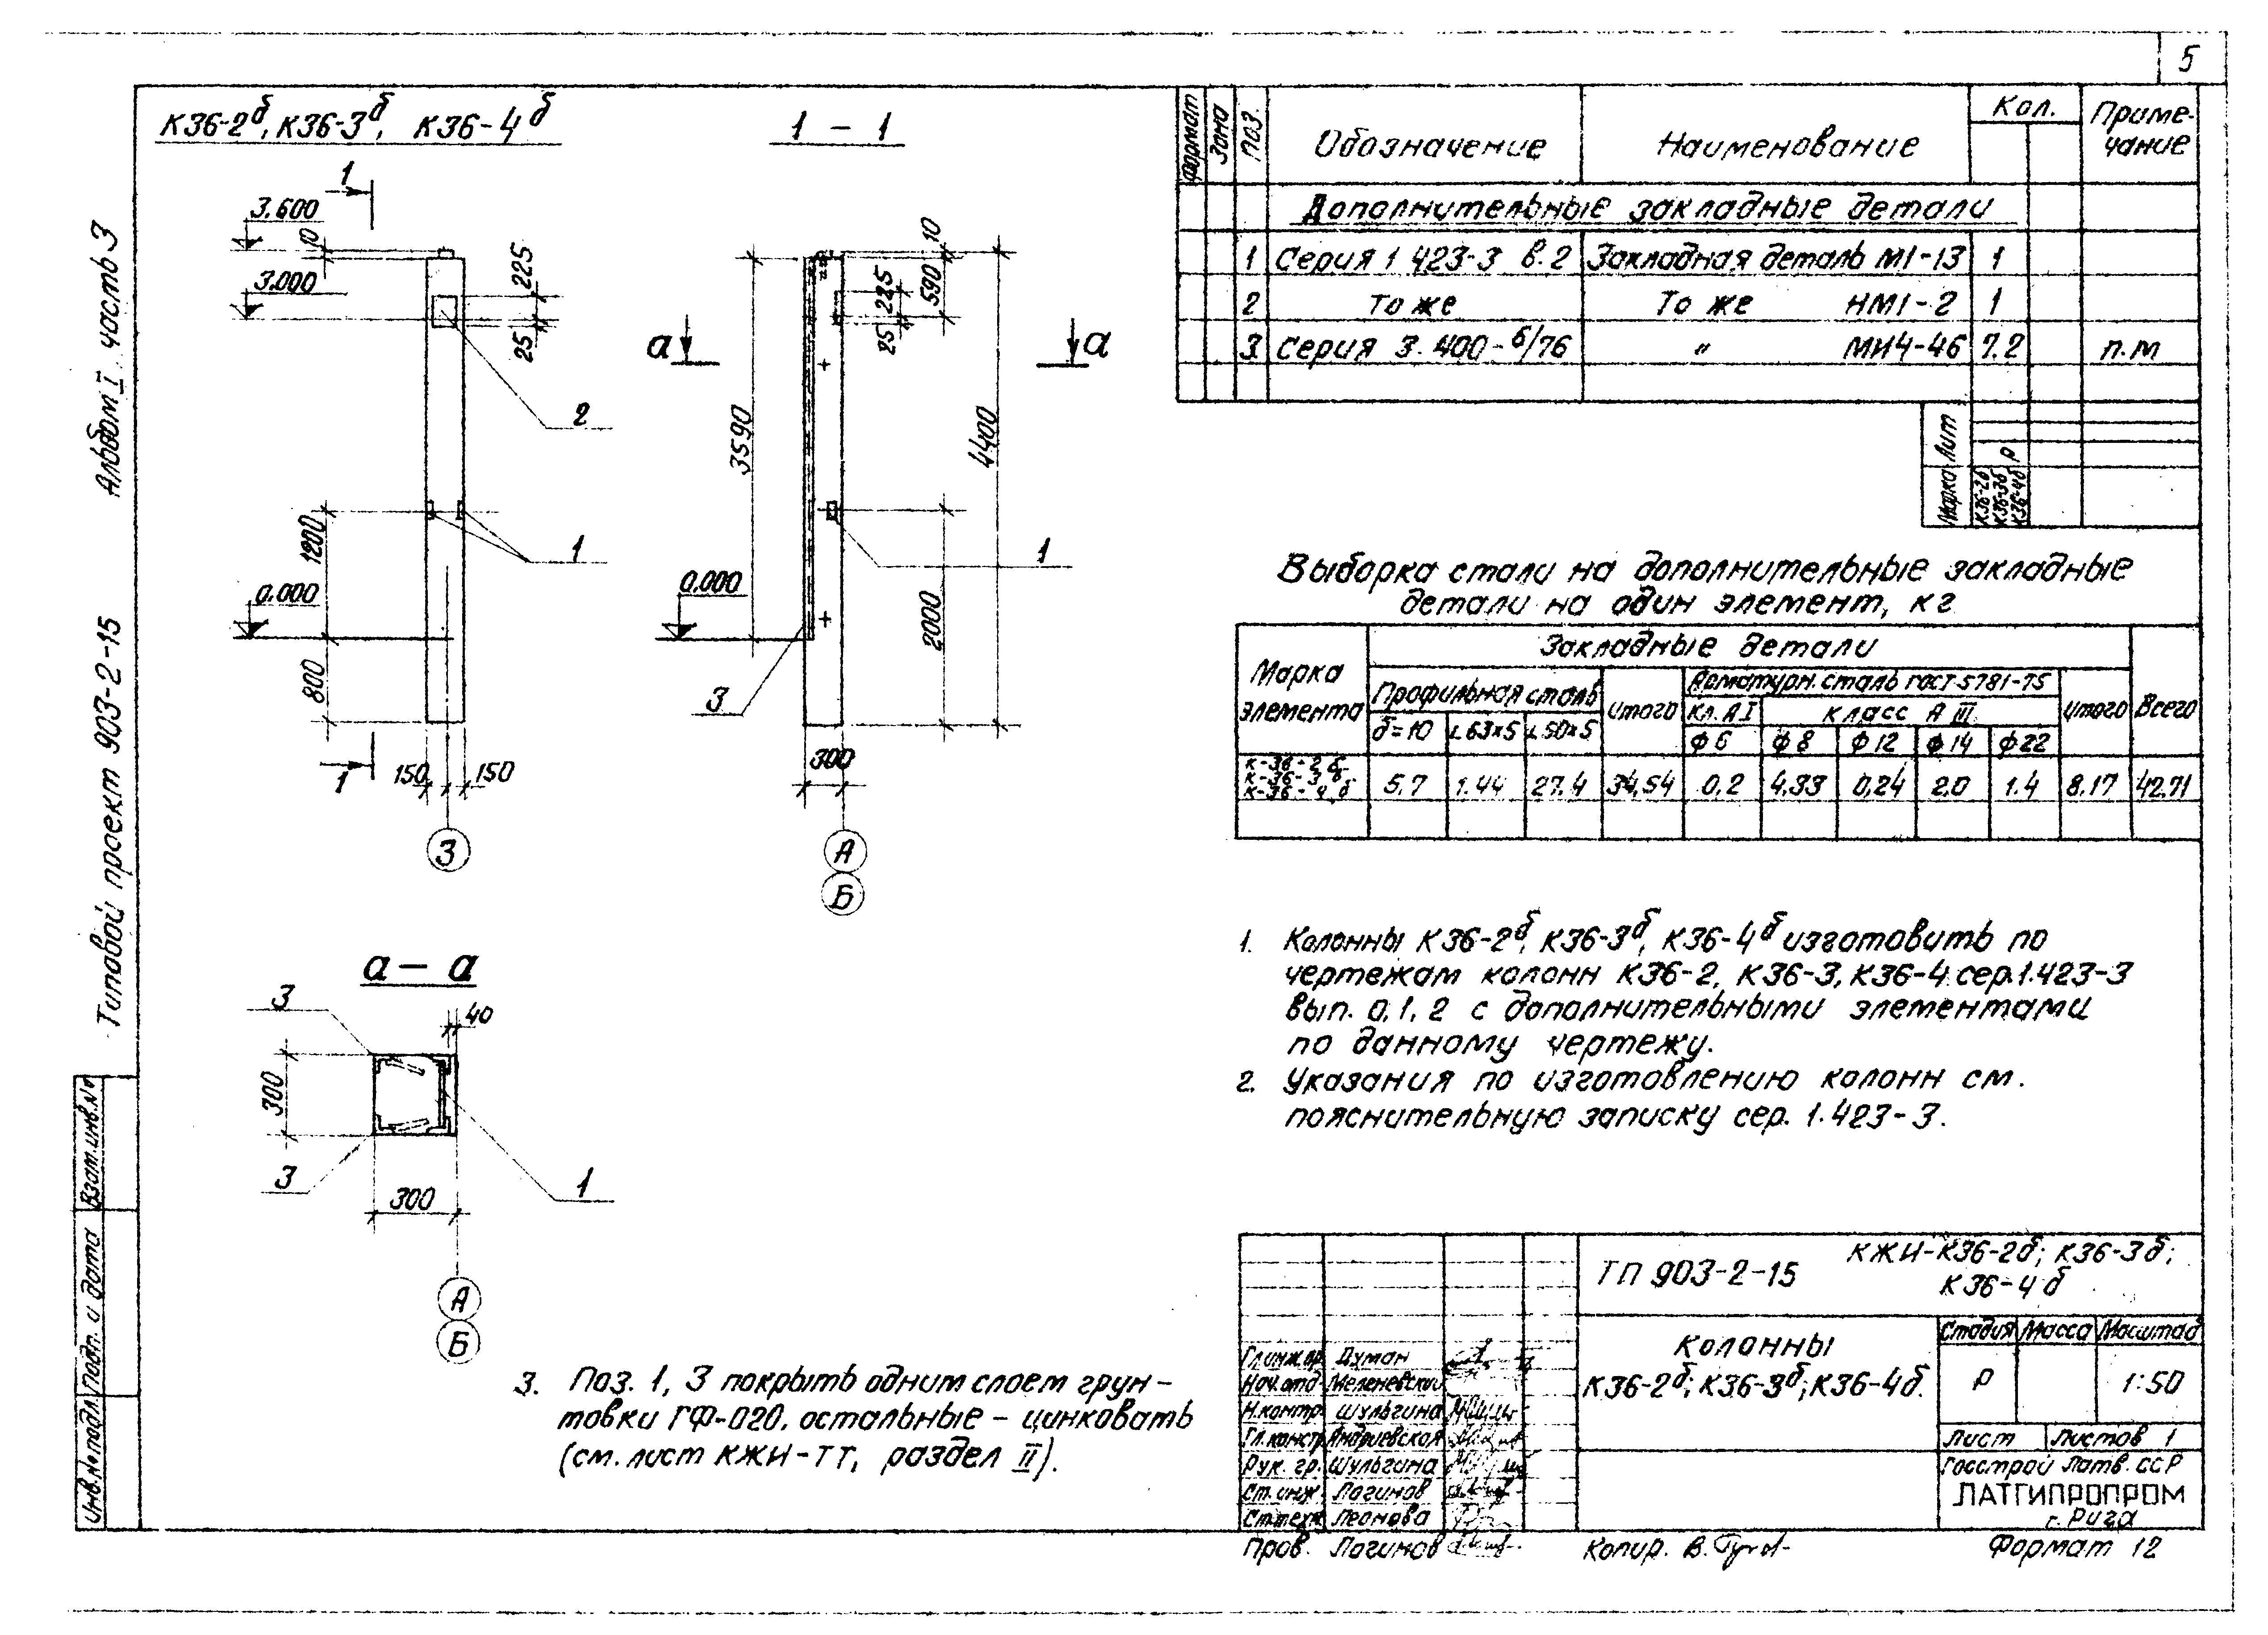 5
Типовой проект 903-2-15 Альбом I часть 3
К36-2б, К36-3б, К36-4б
1
3.600
10
3.000
225
25
2
1200
1
0.000
800
1
150 150
3
1 – 1
10
590
225
25
а а
3590
4400
1
0.000
2000
3
300
А
Б
а – а
3
40
300
3
1
300
А
Б
Формат Зона Поз. Обозначение Наименование Кол. Приме-
чание
Дополнительные закладные детали
1 Серия 1 423-3 в.2 Закладная деталь М1-13 1
2 То же То же НМ1-2 1
3 Серия 3.400-6/76 " МИ4-46 7.2 п.м
Марка Лит
К36-2б К36-3б К36-4б Р
Выборка стали на дополнительные закладные
детали на один элемент, кг
Марка
элемента
Закладные детали
Профильная сталь Итого Арматурн. сталь ГОСТ 5781-75 Итого Всего
Кл. А I Класс А III
δ=10 ∟63×5 ∟50×5 ф6 ф8 ф12 ф14 ф22
К-36-2б
К-36-3б
К-36-4б
5,7 1.44 27.4 34,54 0,2 4,33 0,24 2.0 1.4 8.17 42.71
1. Колонны К36-2б, К36-3б, К36-4б изготовить по
чертежам колонн К36-2, К36-3, К36-4 сер.1.423-3
вып. 0,1,2 с дополнительными элементами
по данному чертежу.
2. Указания по изготовлению колонн см.
пояснительную записку сер. 1.423-3.
3. Поз. 1, 3 покрыть одним слоем грун-
товки ГФ-020, остальные – цинковать
(см. лист КЖИ-ТТ, раздел II).
ТП 903-2-15 КЖИ-К36-2б; К36-3б;
К36-4б
Колонны
К36-2б; К36-3б; К36-4б.
Стадия Масса Масштаб
Р 1:50
Лист Листов 1
Госстрой Латв. ССР
ЛАТГИПРОПРОМ
г. Рига
Гл.инж.пр. Думан
Нач.отд. Меленевский
Н.контр. Шульгина
Гл.констр. Андриевская
Рук. гр. Шульгина
Ст.инж. Логинов
Ст.техн. Леонова
Пров. Логинов
Копир. В.
Формат 12
Взам.инв.№
Подп. и дата
Инв.№подл.